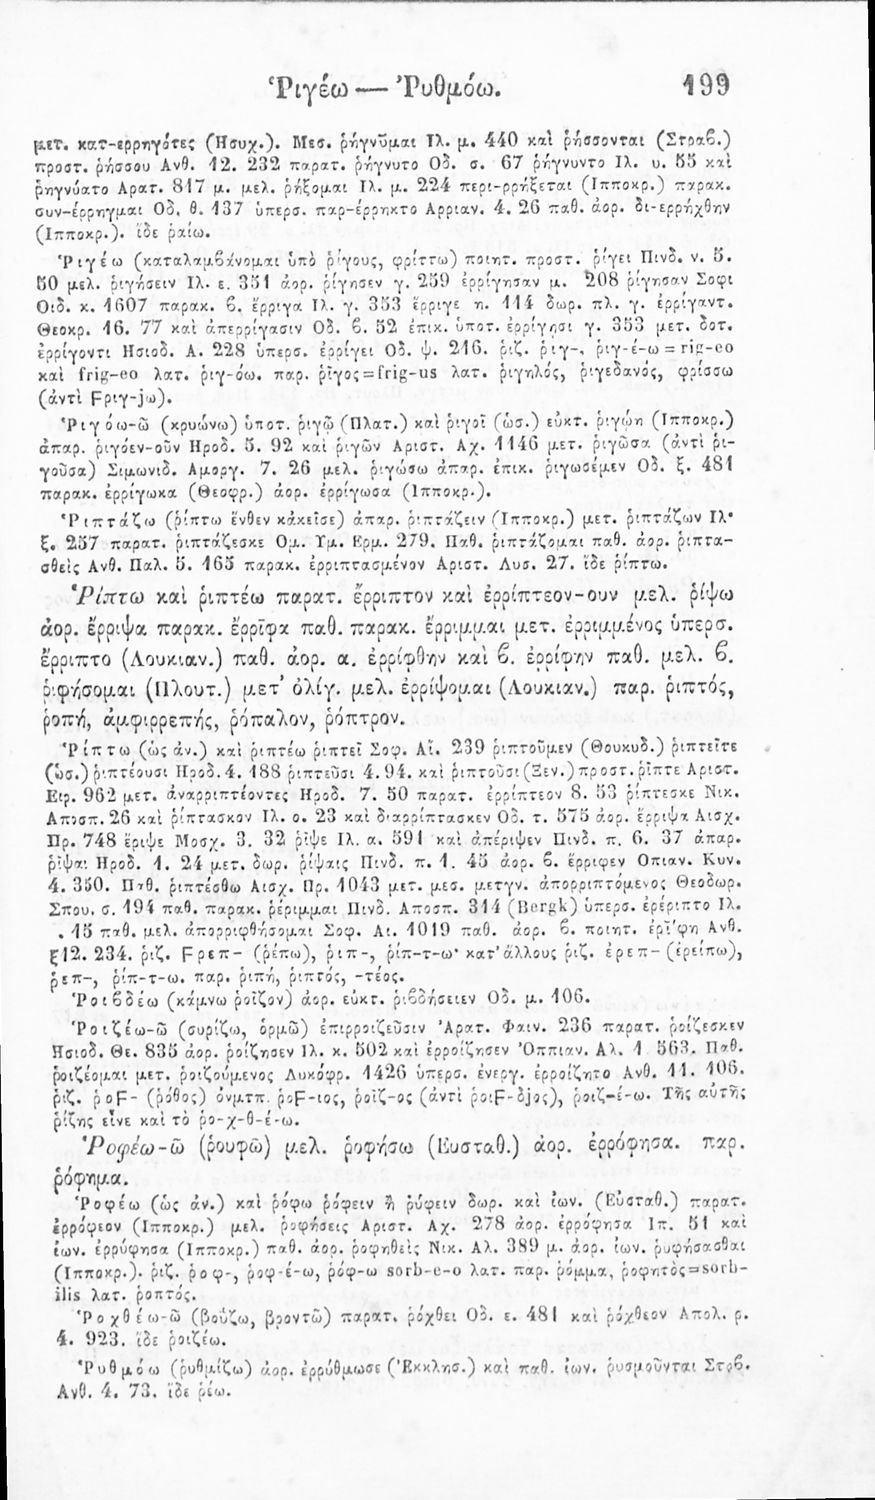 Ῥιγέω — Ῥυθμόω. 199
μετ. κατ-ερρηγότες (Ησυχ.). Μεσ. ῥήγνῡμαι Ἰλ. μ. 440 καὶ ῥήσσονται (Στραβ.)
προστ. ῥήσσου Ανθ. 12. 232 παρατ. ῥήγνυτο Οδ. σ. 67 ῥήγνυντο Ιλ. υ. 55 καὶ
ῥηγνύατο Αρατ. 817 μ. μελ. ῥήξομαι Ιλ. μ. 224 περι-ρρήξεται (Ιπποκρ.) παρακ.
συν-έρρηγμαι Οδ. θ. 137 ὑπερσ. παρ-έρρηκτο Αρριαν. 4. 26 παθ. ἀορ. δι-ερρήχθην
(Ιπποκρ.). ἴδε ῥαίω.
Ῥιγέω (καταλαμβάνομαι ὑπὸ ῥίγους, φρίττω) ποιητ. προστ. ῥίγει Πινδ. ν. 5.
50 μελ. ῥιγήσειν Ιλ. ε. 351 ἀορ. ῥίγησεν γ. 259 ἐρρίγησαν μ. 208 ῥίγησαν Σοφι
Οιδ. κ. 1607 παρακ. β. ἔρριγα Ιλ. γ. 353 ἔρριγε η. 114 δωρ. πλ. γ. ἐρρίγαντ.
Θεοκρ. 16. 77 καὶ ἀπερρίγασιν Οδ. β. 52 ἐπικ. ὑποτ. ἐρρίγησι γ. 353 μετ. δοτ.
ἐρρίγοντι Ησιοδ. Α. 228 ὑπερσ. ἐρρίγει Οδ. ψ. 216. ῥιζ. ῥιγ-, ῥιγ-έ-ω=rig-eo
καὶ frig-eo λατ. ῥιγ-όω. παρ. ῥῖγος=frig-us λατ. ῥιγηλός, ῥιγεδανός, φρίσσω
(ἀντὶ Ϝριγ-jω).
Ῥιγόω-ῶ (κρυώνω) ὑποτ. ῥιγῷ (Πλατ.) καὶ ῥιγοῖ (ὡσ.) εὐκτ. ῥιγῴη (Ιπποκρ.)
ἀπαρ. ῥιγόεν-οῦν Ηροδ. 5. 92 καὶ ῥιγῶν Αριστ. Αχ. 1146 μετ. ῥιγῶσα (ἀντὶ ῥι-
γοῦσα) Σιμωνιδ. Αμοργ. 7. 26 μελ. ῥιγώσω ἀπαρ. ἐπικ. ῥιγωσέμεν Οδ. ξ. 481
παρακ. ἐρρίγωκα (Θεοφρ.) ἀορ. ἐρρίγωσα (Ιπποκρ.).
Ῥιπτάζω (ῥίπτω ἔνθεν κἀκεῖσε) ἀπαρ. ῥιπτάζειν (Ιπποκρ.) μετ. ῥιπτάζων Ιλ.
ξ. 257 παρατ. ῥιπτάζεσκε Ομ. Υμ. Ερμ. 279. Παθ. ῥιπτάζομαι παθ. ἀορ. ῥιπτα-
σθεὶς Ανθ. Παλ. 5. 165 παρακ. ἐρριπτασμένον Αριστ. Λυσ. 27. ἴδε ῥίπτω.
Ῥίπτω καὶ ῥιπτέω παρατ. ἔρριπτον καὶ ἐρρίπτεον-ουν μελ. ῥίψω
ἀορ. ἔρριψα παρακ. ἔρρῖφα παθ. παρακ. ἔρριμμαι μετ. ἐρριμμένος ὑπερσ.
ἔρριπτο (Λουκιαν.) παθ. ἀορ. α. ἐρρίφθην καὶ β. ἐρρίφην παθ. μελ. β.
ῥιφήσομαι (Πλουτ.) μετ’ ὀλίγ. μελ. ἐρρίψομαι (Λουκιαν.) παρ. ῥιπτός,
ῥοπή, ἀμφιρρεπής, ῥόπαλον, ῥόπτρον.
Ῥίπτω (ὡς ἀν.) καὶ ῥιπτέω ῥιπτεῖ Σοφ. Αἴ. 239 ῥιπτοῦμεν (Θουκυδ.) ῥιπτεῖτε
(ὡσ.) ῥιπτέουσι Ηροδ. 4. 188 ῥιπτεῦσι 4. 94. καὶ ῥιπτοῦσι (Ξεν.) προστ. ῥῖπτε Αριστ.
Ειρ. 962 μετ. ἀναρριπτέοντες Ηροδ. 7. 50 παρατ. ἐρρίπτεον 8. 53 ῥίπτεσκε Νικ.
Αποσπ. 26 καὶ ῥίπτασκον Ιλ. ο. 23 καὶ διαρρίπτασκεν Οδ. τ. 575 ἀορ. ἔρριψα Αισχ.
Πρ. 748 ἔριψε Μοσχ. 3. 32 ῥῖψε Ιλ. α. 591 καὶ ἀπέριψεν Πινδ. π. 6. 37 ἀπαρ.
ῥῖψαι Ηροδ. 1. 24 μετ. δωρ. ῥίψαις Πινδ. π. 1. 45 ἀορ. β. ἔρριφεν Οπιαν. Κυν.
4. 350. Παθ. ῥιπτέσθω Αισχ. Πρ. 1043 μετ. μεσ. μετγν. ἀπορριπτόμενος Θεοδωρ.
Σπου. σ. 194 παθ. παρακ. ῥέριμμαι Πινδ. Αποσπ. 314 (Bergk) ὑπερσ. ἐρέριπτο Ιλ.
. 15 παθ. μελ. ἀπορριφθήσομαι Σοφ. Αι. 1019 παθ. ἀορ. β. ποιητ. ἐρίφη Ανθ.
ξ12. 234. ῥιζ. Ϝρεπ- (ῥέπω), ῥιπ-, ῥίπ-τ-ω· κατ’ ἄλλους ῥιζ. ἐρεπ- (ἐρείπω),
ῥεπ-, ῥίπ-τ-ω. παρ. ῥιπή, ῥιπτός, -τέος.
Ῥοιβδέω (κάμνω ῥοῖζον) ἀορ. εὐκτ. ῥιβδήσειεν Οδ. μ. 106.
Ῥοιζέω-ῶ (συρίζω, ὁρμῶ) ἐπιρροιζεῦσιν Ἀρατ. Φαιν. 236 παρατ. ῥοίζεσκεν
Ησιοδ. Θε. 835 ἀορ. ῥοίζησεν Ιλ. κ. 502 καὶ ἐρροίζησεν Ὀππιαν. Αλ. 1 563. Παθ.
ῥοιζέομαι μετ. ῥοιζούμενος Λυκόφρ. 1426 ὑπερσ. ἐνεργ. ἐρροίζητο Ανθ. 11. 106.
ῥιζ. ῥοϜ- (ῥόθος) ὀνμτπ. ῥοϜ-ιος, ῥοῖζ-ος (ἀντὶ ῥοιϜ-δjος), ῥοιζ-έ-ω. Τῆς αὐτῆς
ῥίζης εἶνε καὶ τὸ ῥο-χ-θ-έ-ω.
Ῥοφέω-ῶ (ῥουφῶ) μελ. ῥοφήσω (Ευσταθ.) ἀορ. ἐρρόφησα. παρ.
ῥόφημα.
Ῥοφέω (ὡς ἀν.) καὶ ῥόφω ῥόφειν ἢ ῥύφειν δωρ. καὶ ἰων. (Εὐσταθ.) παρατ.
ἐρρόφεον (Ιπποκρ.) μελ. ῥοφήσεις Αριστ. Αχ. 278 ἀορ. ἐρρόφησα Ιπ. 51 καὶ
ἰων. ἐρρύφησα (Ιπποκρ.) παθ. ἀορ. ῥοφηθεὶς Νικ. Αλ. 389 μ. ἀορ. ἰων. ῥυφήσασθαι
(Ιπποκρ.). ῥιζ. ῥοφ-, ῥοφ-έ-ω, ῥόφ-ω sorb-e-o λατ. παρ. ῥόμμα, ῥοφητὸς=sorb-
ilis λατ. ῥοπτός.
Ῥοχθέω-ῶ (βοΰζω, βροντῶ) παρατ. ῥόχθει Οδ. ε. 481 καὶ ῥόχθεον Απολ. ρ.
4. 923. ἴδε ῥοιζέω.
Ῥυθμόω (ῥυθμίζω) ἀορ. ἐρρύθμωσε (Ἐκκλησ.) καὶ παθ. ἰων. ῥυσμοῦνται Στρβ.
Ανθ. 4. 73. ἴδε ῥέω.